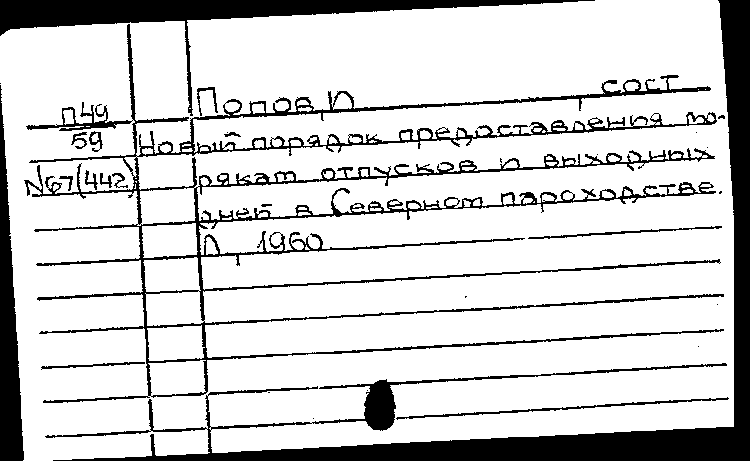 П49
59
№67(442)
Попов, И , сост
Новый порядок предоставления мо-
рякам отпусков и выходных
дней в Северном пароходстве.
Л , 1960